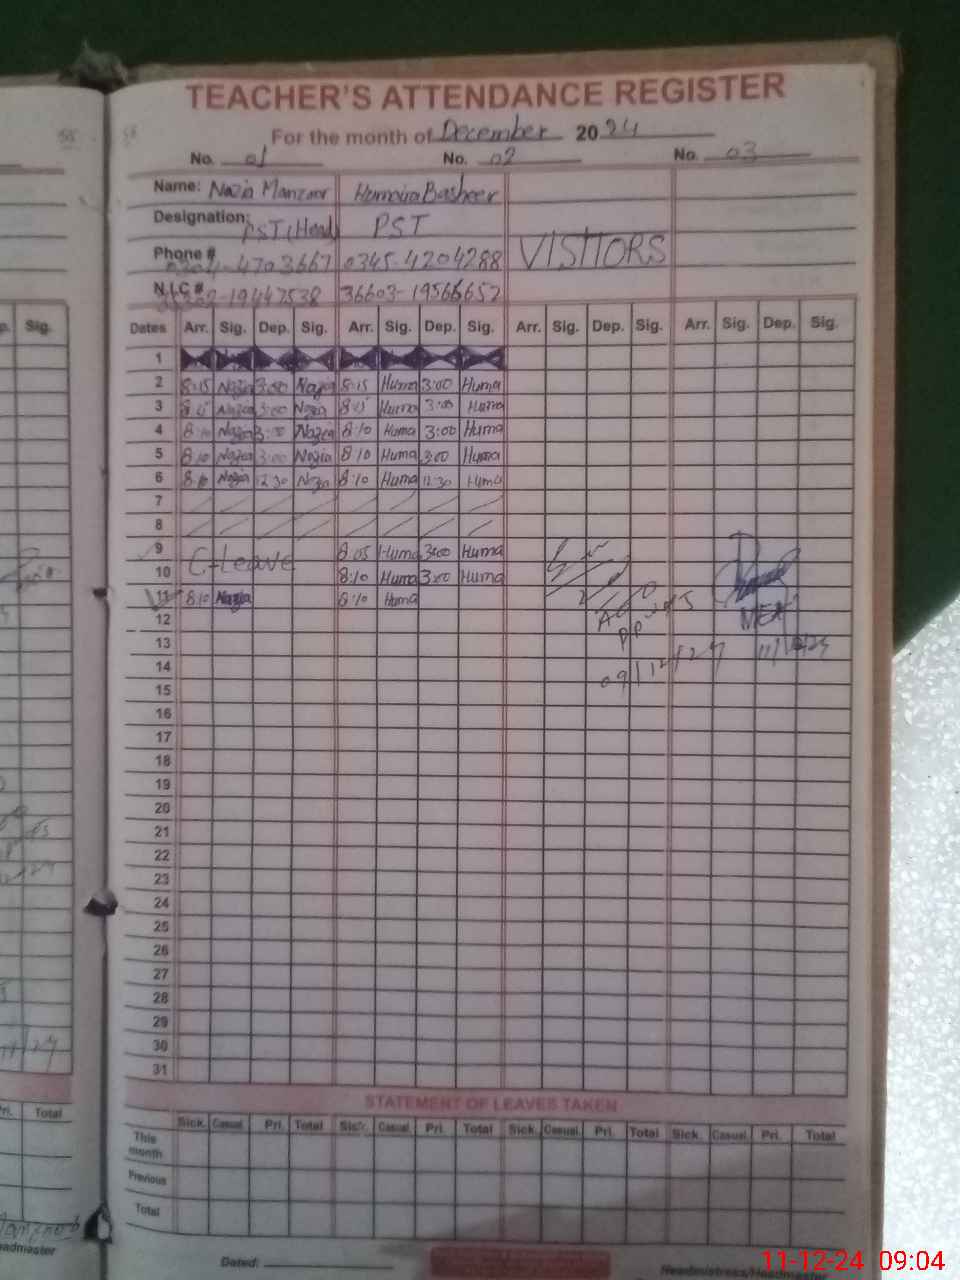 TEACHER'S ATTENDANCE REGISTER
For the month of December 2024
No. 01 No. 02 No. 03
Name: Nazia Manzoor Humaira Basheer
Designation: PST (Head) PST
Phone # 0304-4703667 0345-4204288 VISITORS
N.I.C # -19447538 36603-19566652
Dates Arr. Sig. Dep. Sig. Arr. Sig. Dep. Sig. Arr. Sig. Dep. Sig. Arr. Sig. Dep. Sig.
1
2 8:15 Nazia 3:00 Nazia 8:15 Huma 3:00 Huma
3 8:15 Nazia 3:00 Nazia 8:15 Huma 3:00 Huma
4 8:10 Nazia 3:00 Nazia 8:10 Huma 3:00 Huma
5 8:10 Nazia 3:00 Nazia 8:10 Huma 3:00 Huma
6 8:10 Nazia 12:30 Nazia 8:10 Huma 12:30 Huma
7
8
9 C-Leave 8:05 Huma 3:00 Huma
10 8:10 Huma 3:00 Huma
11 8:10 Nazia 8:10 Huma MEA
12
13 11/12/24
14 09/12/24
15
16
17
18
19
20
21
22
23
24
25
26
27
28
29
30
31
STATEMENT OF LEAVES TAKEN
Sick. Casual. Pri. Total Sick. Casual. Pri. Total Sick. Casual. Pri. Total Sick. Casual. Pri. Total
This month
Previous
Total
Dated:
Headmistress/Headmaster
11-12-24 09:04